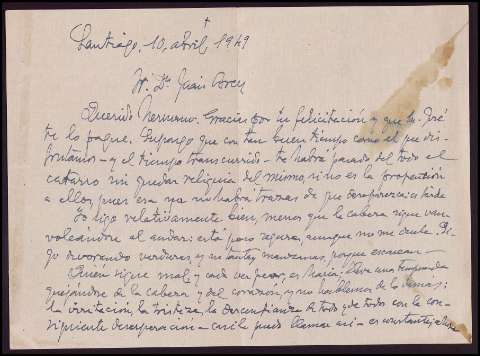 †
Santiago, 10, abril, 1949
Sr. Dn. Juan
Querido hermano: Gracias por tu felicitación y que S. José
te lo pague. Supongo que con tan buen tiempo como el que dis-
frutamos – y el tiempo transcurrido – te habrá pasado del todo el
catarro sin quedar reliquia del mismo, si no es la propensión
a ellos, pues esa ya no habrá trazas de que desaparezca: es tarde
Yo sigo relativamente bien, menos que la cabeza sigue tam-
baleándose al andar: está poco segura, aunque no me duele. Si-
go devorando verduras, y no tantas manzanas, porque escasean
Quien sigue mal y cada vez peor, es María, lleva una temporada
quejándose de la cabeza y del corazón, y no hablemos de lo demás:
la irritación, la tristeza, la desconfianza de todo y de todos con la con-
siguiente desesperación – casi le puedo llamar así – es constante